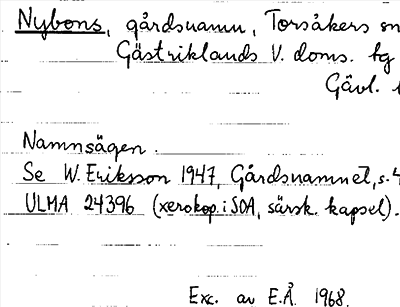 Nybons, gårdsnamn, Torsåkers sn
Gästriklands V. doms. hg
Gävl. l
Namnsägen.
Se W. Eriksson 1947, Gårdsnamnet, s. 4
ULMA 24396 (xerokop. i SOA, särsk. kapsel).
Exc. av E.Å. 1968.